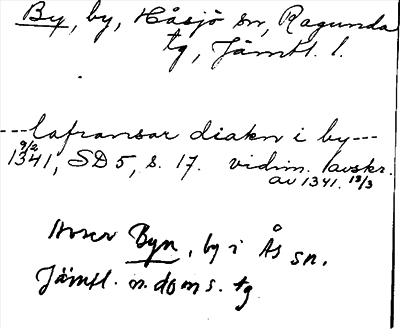 By, by, Håsjö sn, Ragunda
tg, Jämtl. l.
---lafransar diakn i by---
9/2
1341, SD 5, s. 17. vidim. avskr.
av 1341. 13/3
Byn, by i Ås sn.
Jämtl. n. doms. tg